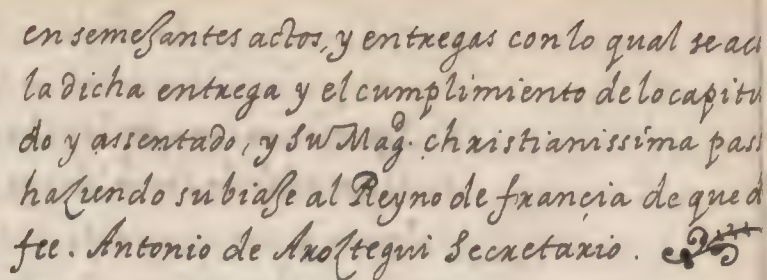 en semejantes actos, y entregas con lo qual se
la dicha entrega y el cumplimiento de lo
do y assentado, y Su Magᵈ. christianissima
haziendo su biaje al Reyno de françia de que
fee. Antonio de Aroztegui Secretario.